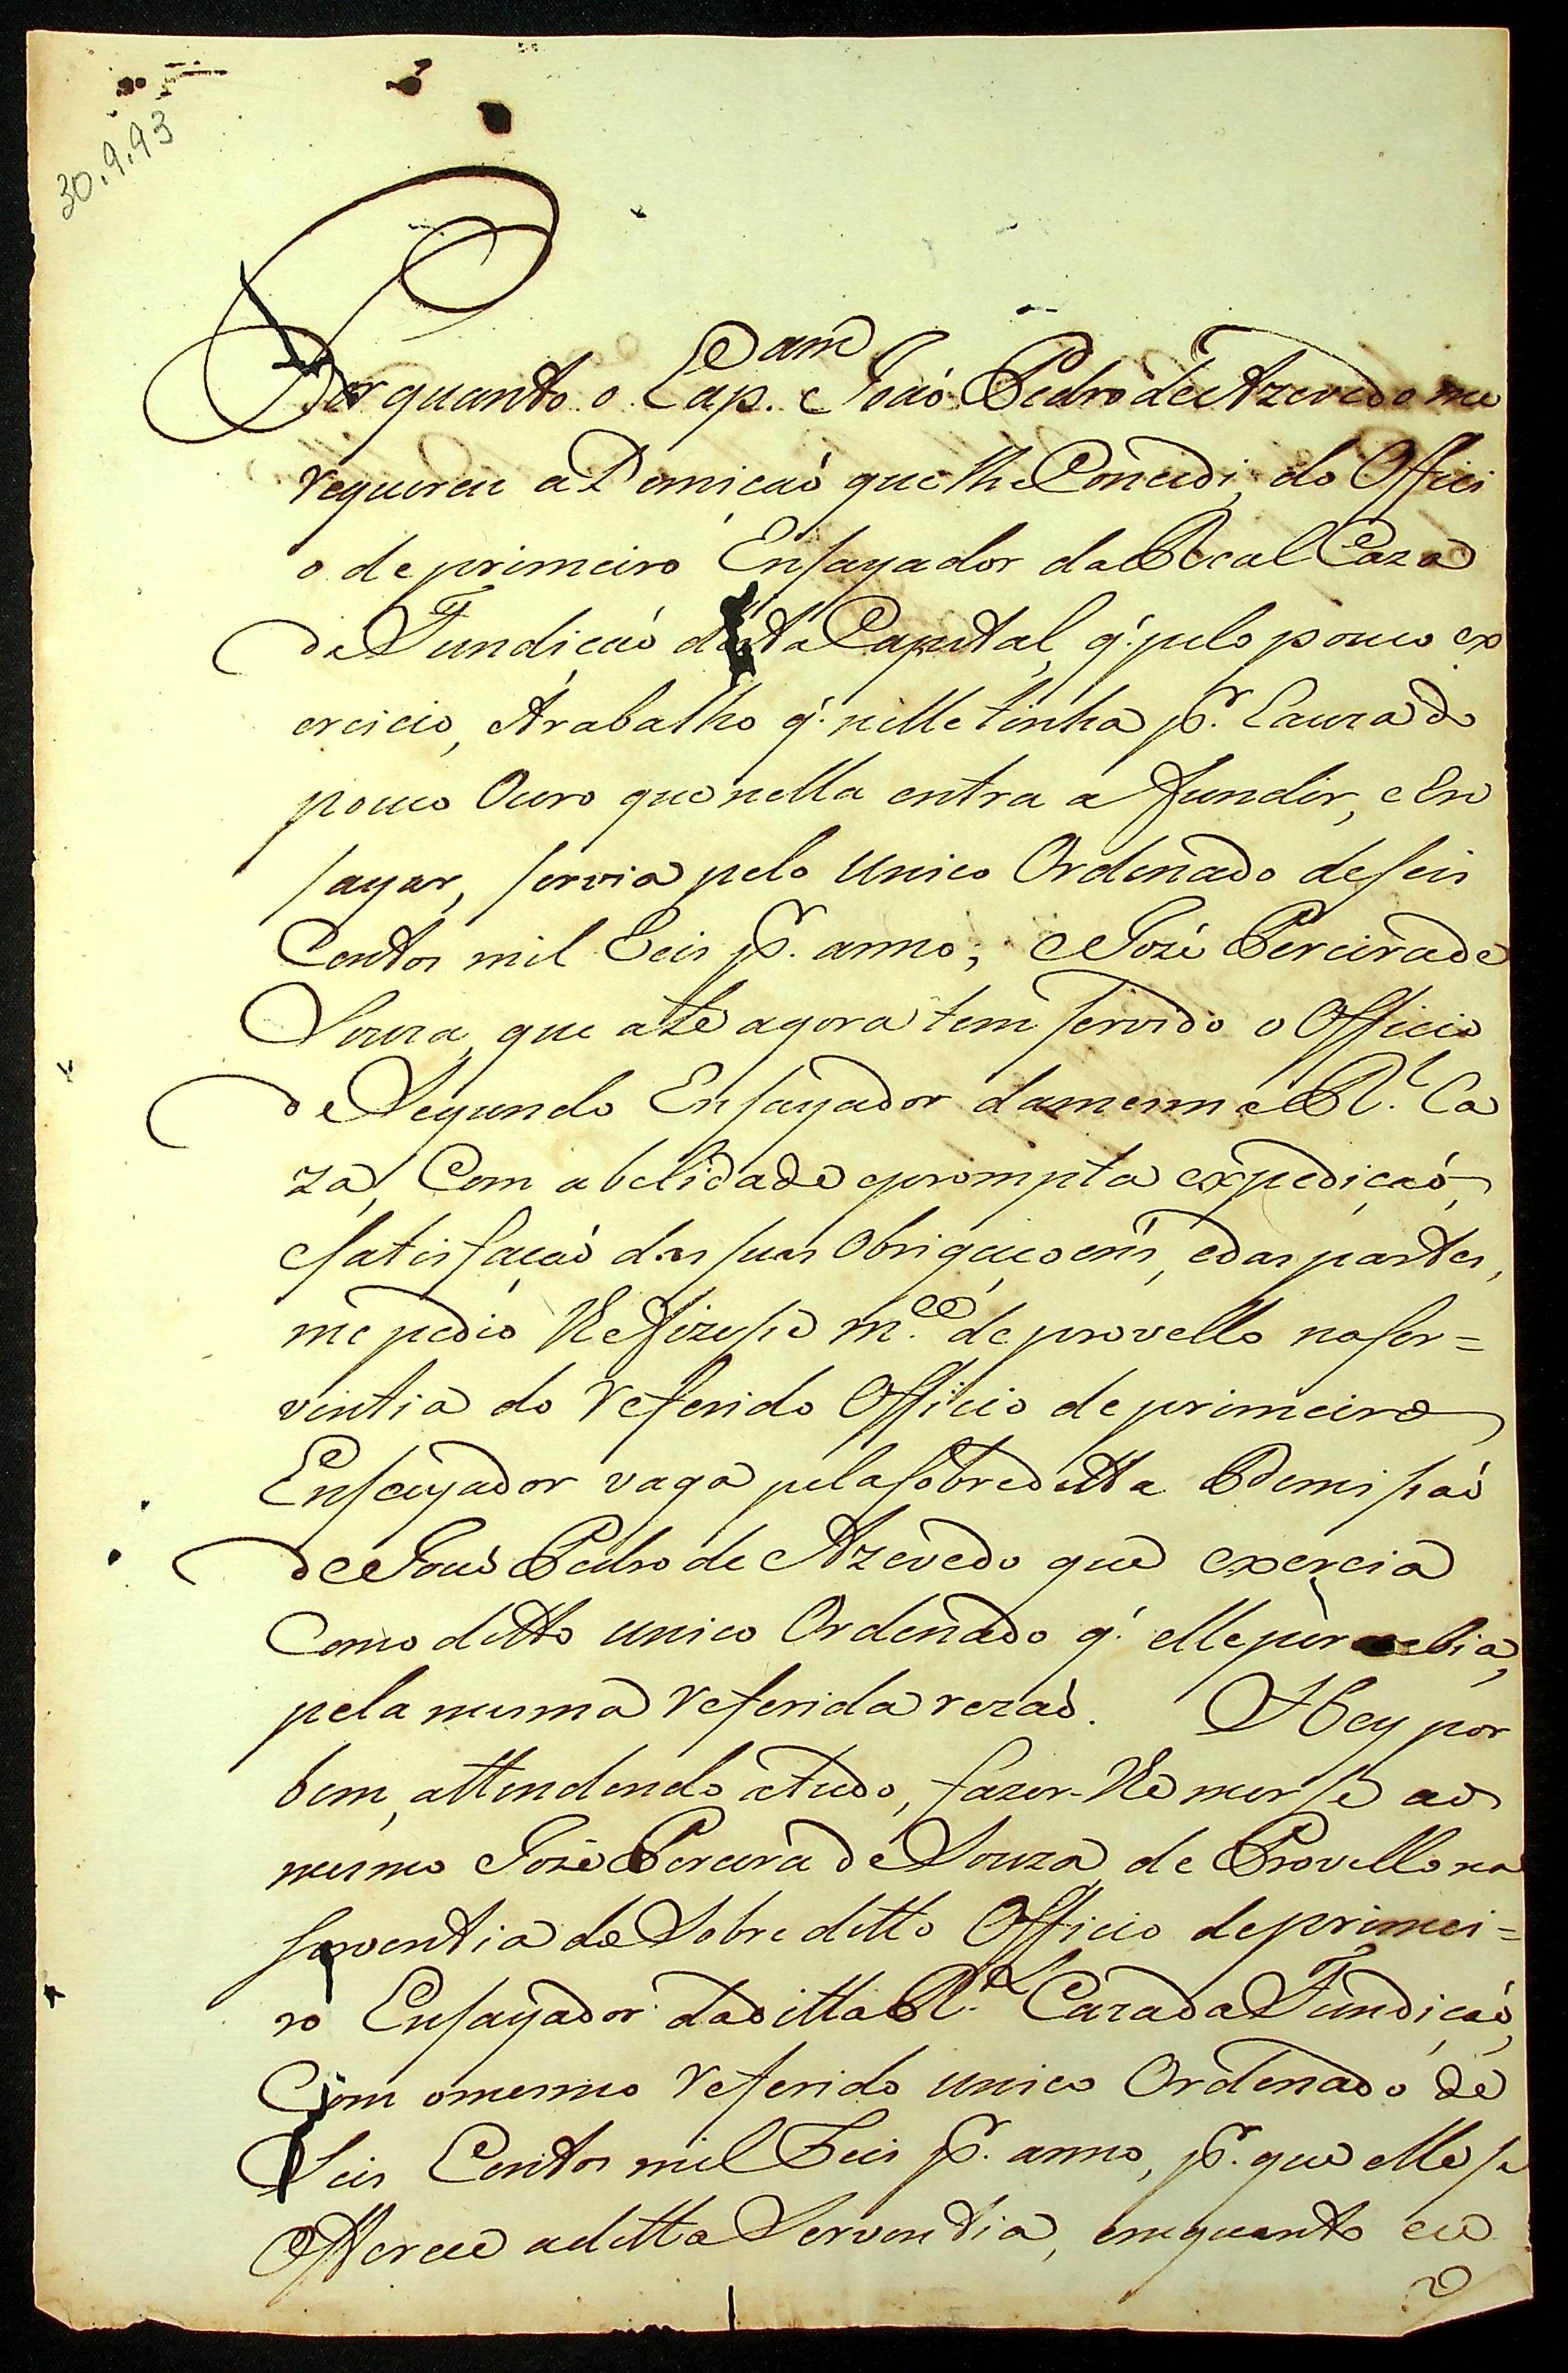 30.9.93
Porquanto o Cap.am João Pedro de Azevedo me
requereu a Demicaó que lhe Concedi, do Offici
o de primeiro Ensayador da Real Caza
de Fundicaó desta Capital, q' pelo pouco ex
ercicio, e trabalho q' nelle tinha p.r Cauza do
pouco Ouro que nella entra a fundir, e En
sayar, servia pelo unico Ordenado de seis
Centos mil Reis p.r anno; e José Pereira de
Souza, que até agora tem servido o Officio
de Segundo Ensayador da mesma R.l Ca
za, Com abelidade e prompta expedicaó,
e satisfacaó das suas Obrigacoens, e das partes,
me pedio lhe fizesse m.ce de provello na ser=
ventia do referido Officio de primeiro
Ensayador vago pela sobreditta Demissaó
de Joaó Pedro de Azevedo que exercia
Com o ditto unico Ordenado q' elle percebia,
pela mesma referida rezaó. Hey por
bem, attendendo a tudo, fazer-lhe merse ao
mesmo José Pereira de Souza, de Provello na
serventia do Sobreditto Officio de primei=
ro Ensayador da ditta R.l Caza da Fundicaó,
Com o mesmo referido unico Ordenado de
Seis Centos mil Reis p.r anno, p.r que elle se
Offerece a ditta Serventia, emquanto eu